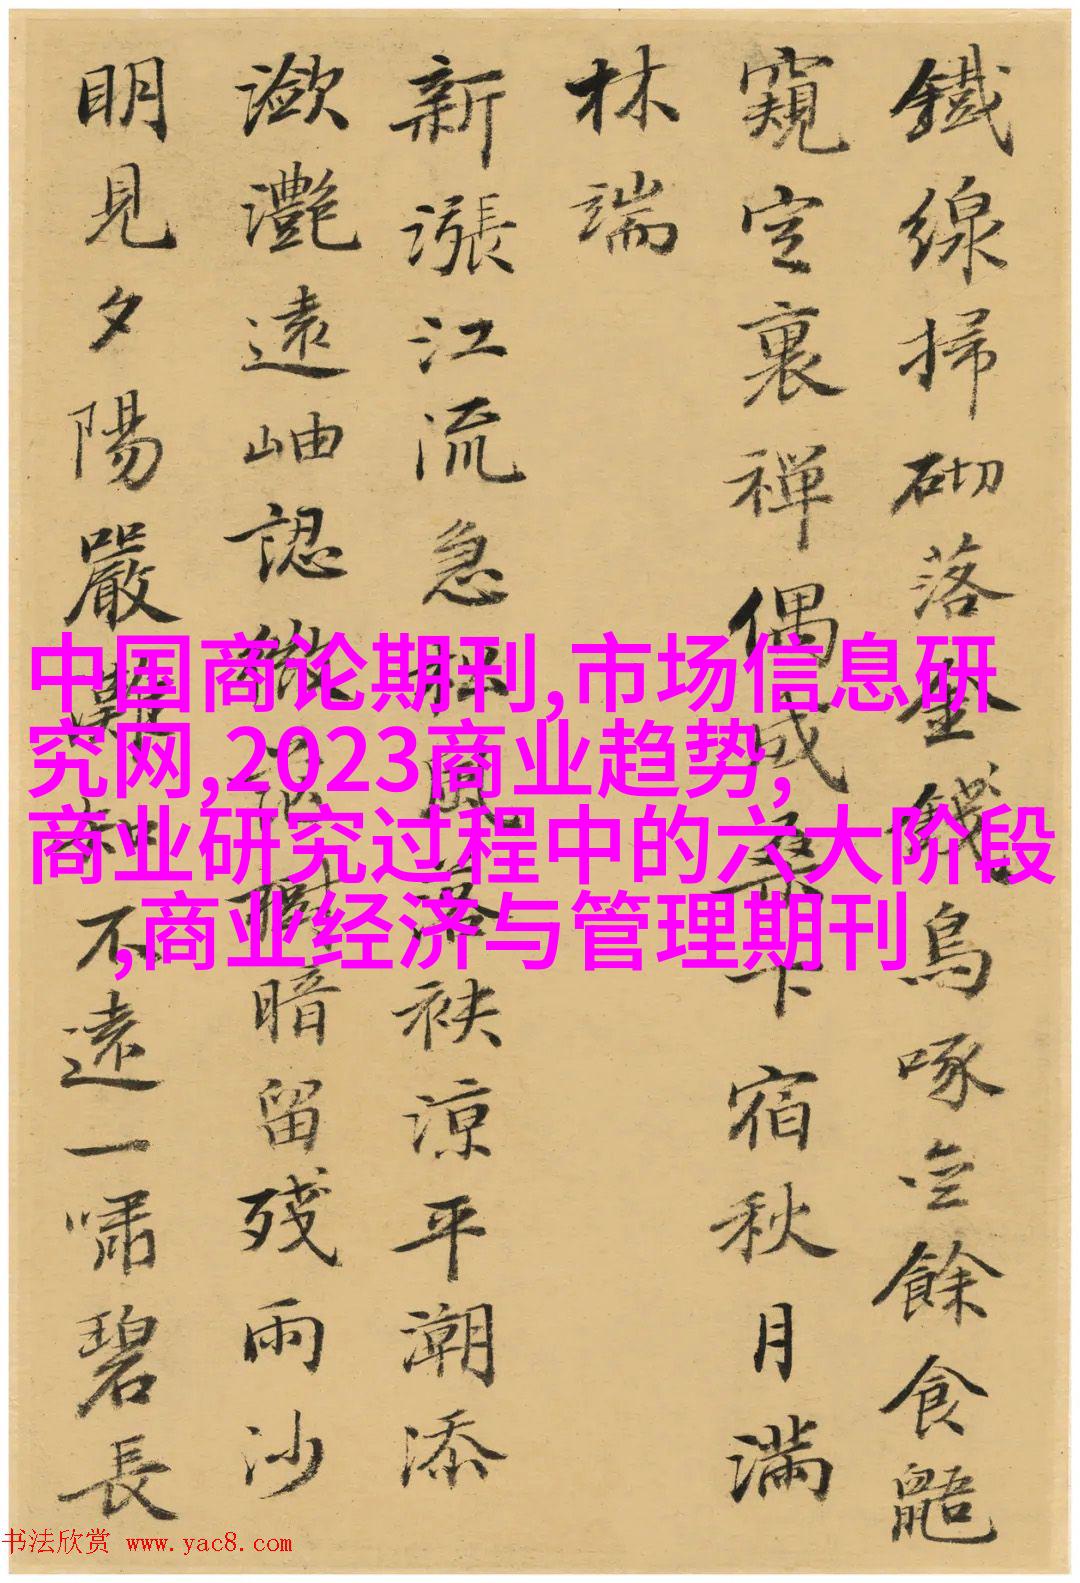 鐵線掃砌落饑烏啄餘食鼯
窺定裏禪偶成桑下宿秋月滿
林端
新漲江流急松風落袂涼平潮添
瀲灩遠岫認微茫樹暗留殘雨沙
明見夕陽嚴灘知不遠一嘯碧長
中国商论期刊,市场信息研
究网,2023商业趋势,
商业研究过程中的六大阶段
,商业经济与管理期刊
书法欣赏 www.yac8.com